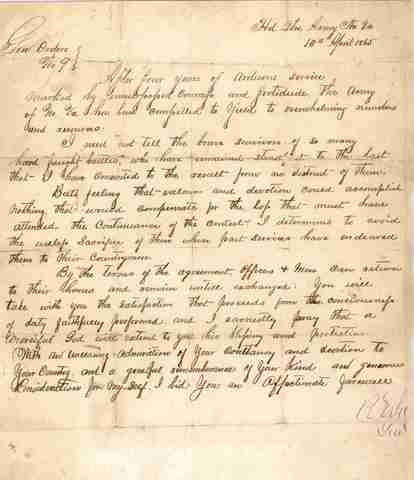 Hd Qrs Army No Va
10th April 1865
Genl Orders
No 9
After four years of arduous service
marked by unsurpassed Courage and fortitude the Army
of No Va has been compelled to Yield to overwhelming numbers
and resources.
I need not tell the brave survivors of so many
hard fought battles, who have remained steadfast to the last
that I have consented to the result from no distrust of them.
But feeling that valour and devotion could accomplish
Nothing that would compensate for the loss that must have
attended the Continuance of the contest I determined to avoid
the useless Sacrifice of those whose past services have endeared
them to their Countrymen
By the terms of the agreement, Officers & Men can return
to their homes and remain until exchanged. You will
take with you the satisfaction that proceeds from the consciousness
of duty faithfully performed, and I earnestly pray that a
Merciful God will extend to you his blessing and protection
With an unceasing admiration of Your Constancy and devotion to
Your Country, and a grateful remembrance of Your Kind and generous
Consideration for My Self, I bid You an Affectionate farewell
R E Lee
Genl